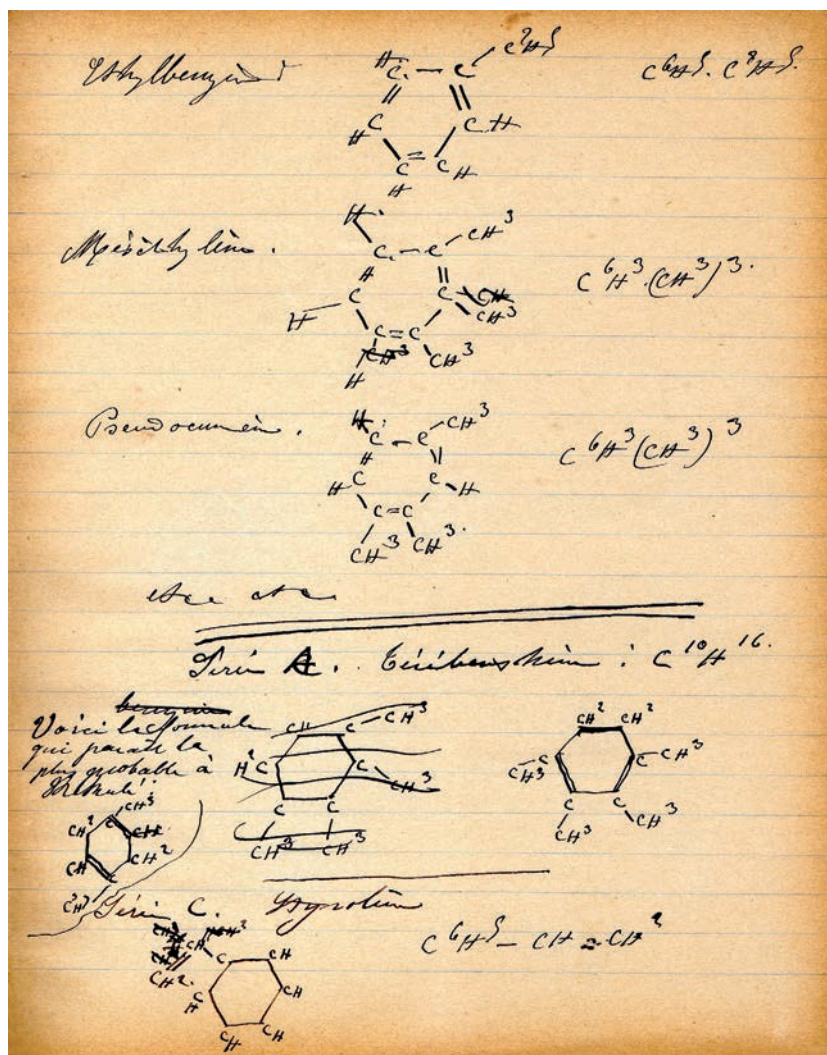 Ethylbenzine
H C — C C²H⁵ C⁶H⁵. C²H⁵.
C H C H
C = C H
H
H.
Mésithylène. C — C CH³
C C CH C⁶H³.(CH³)³.
H CH³
C = C
CH³ CH³
H
Pseudocumène. H C — C CH³ C⁶H³(CH³)³
H C C H
C = C
CH³ CH³.
etc etc
Série A. térébenthine : C¹⁰H¹⁶.
benzine
Voici la formule
qui parait la
plus probable à
Kekulé :
CH C — CH³
H²C C — CH³
C C
CH³ CH³
CH² CH²
CH³ C C — CH³
C C
CH³ CH³
CH³
CH² C CH
CH CH²
C
Série C. Styrolène
C⁶H⁵ — CH = CH²
CH²
CH C CH
CH². CH CH
CH CH